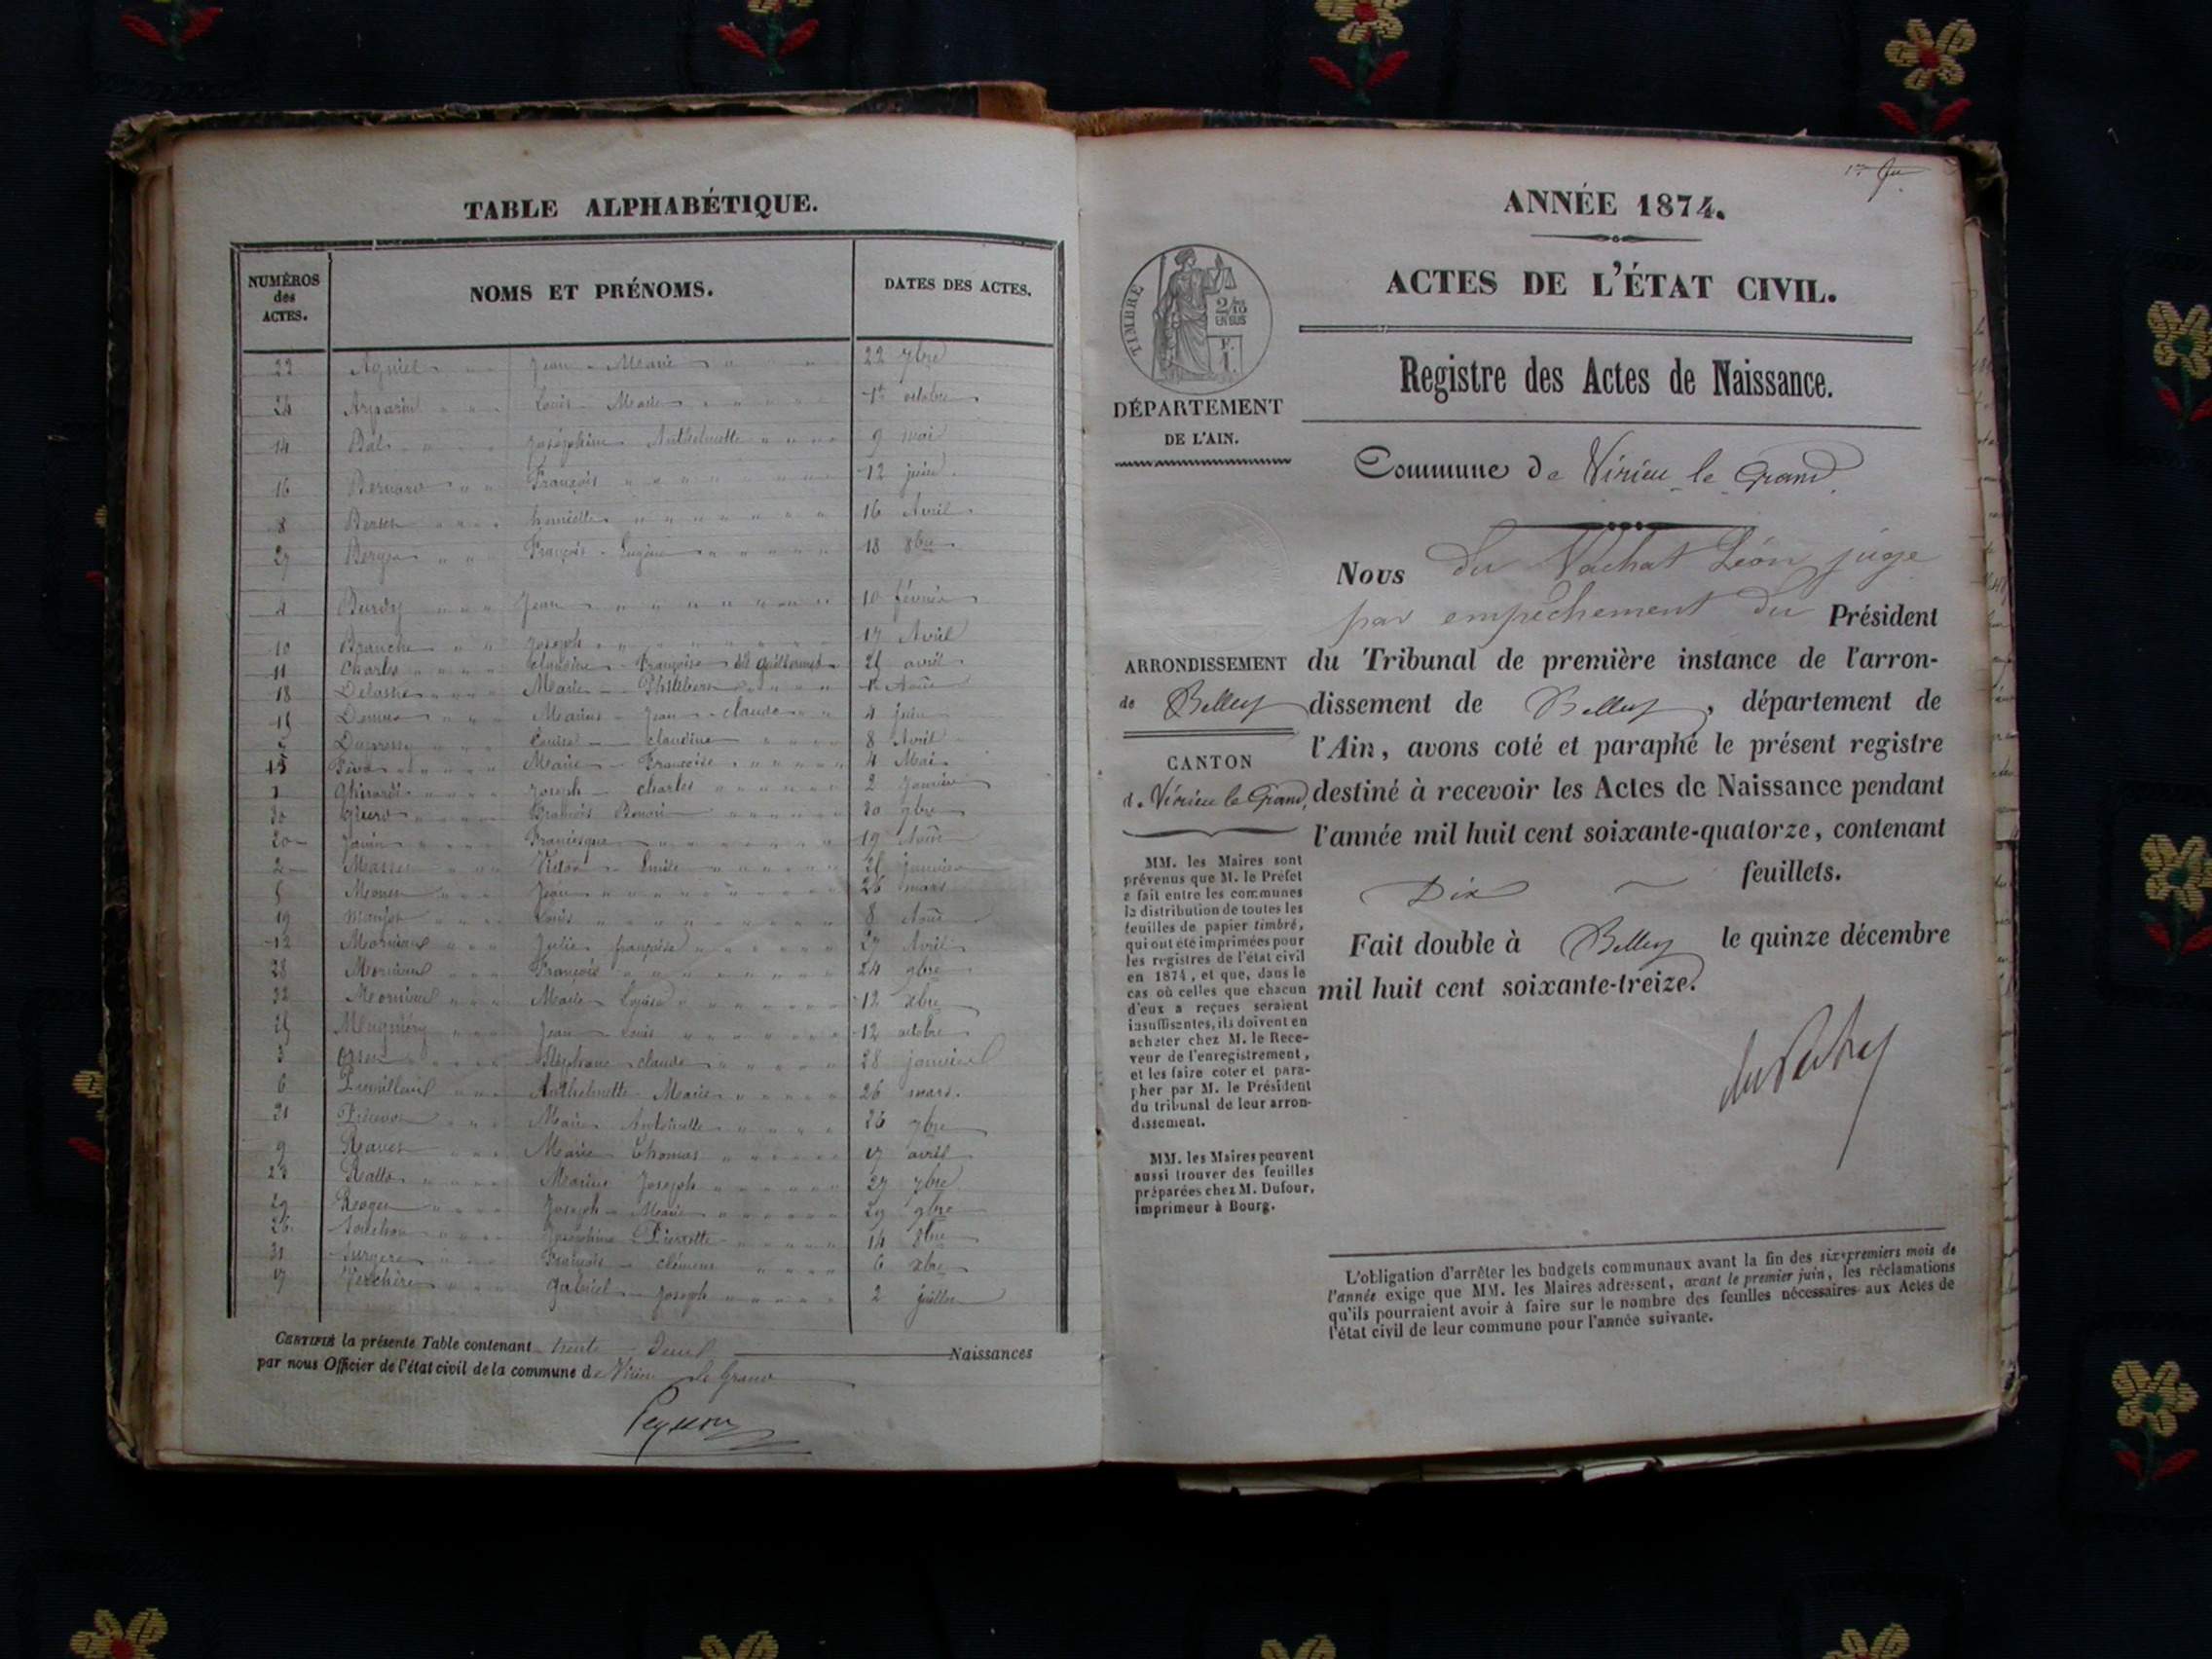 TABLE ALPHABÉTIQUE.
NUMÉROS
des
ACTES.
NOMS ET PRÉNOMS.
DATES DES ACTES.
22 Jean - Marie 22 7bre
24 Louis - Marie 1er octobre
14 Joséphine Anthelmette 9 mai
16 Bernard François 12 juin
8 16 Avril
27 Berger François - Eugène 18 8bre
4 Burdy Jean 10 février
10 Joseph 17 Avril
11 Charles Claudine - Françoise dit Guillermet avril
18 Marie - Philiberte Août
15 Marius - Jean - claude 4 juin
Louise claudine 8 Avril
13 Marie - Françoise 4 Mai
1 Ghirardi Joseph - charles 2 Janvier
30 François 20 9bre
20 Janin Francisque 19 Août
2 Victor - Emile janvier
5 Jean 26 mars
19 Louis 8 Août
12 Julie françoise 27 Avril
28 François 24 9bre
32 Marie Louise 12 xbre
25 Mugniéry Jean Louis 12 octobre
3 Stéphane claude 28 janvier
6 Anthelmette Marie 26 mars.
21 Marie Antoinette 16 7bre
9 Marie Thomas 17 avril
23 Marius Joseph 27 7bre
29 Roger Joseph - Marie 29 9bre
26 Souchon Joséphine Pierrette 14 8bre
31 François - clément 6 xbre
17 Verchère Gabriel Joseph 2 juillet
CERTIFIÉ la présente Table contenant trente Deux Naissances
par nous Officier de l'état civil de la commune de Virieu le Grand
Peysson
ANNÉE 1874.
ACTES DE L'ÉTAT CIVIL.
TIMBRE
2/10
EN SUS
F.
1.
DÉPARTEMENT
DE L'AIN.
Registre des Actes de Naissance.
Commune de Virieu le Grand
Nous du Vachat Léon juge
par empêchement du Président
du Tribunal de première instance de l'arron-
dissement de Belley, département de
l'Ain, avons coté et paraphé le présent registre
destiné à recevoir les Actes de Naissance pendant
l'année mil huit cent soixante-quatorze, contenant
Dix feuillets.
Fait double à Belley le quinze décembre
mil huit cent soixante-treize.
ARRONDISSEMENT
de Belley
CANTON
d. Virieu le Grand
MM. les Maires sont
prévenus que M. le Préfet
a fait entre les communes
la distribution de toutes les
feuilles de papier timbré,
qui ont été imprimées pour
les registres de l'état civil
en 1874, et que, dans le
cas où celles que chacun
d'eux a reçues seraient
insuffisantes, ils doivent en
acheter chez M. le Rece-
veur de l'enregistrement,
et les faire coter et para-
pher par M. le Président
du tribunal de leur arron-
dissement.
MM. les Maires peuvent
aussi trouver des feuilles
préparées chez M. Dufour,
imprimeur à Bourg.
L'obligation d'arrêter les budgets communaux avant la fin des six premiers mois de
l'année exige que MM. les Maires adressent, avant le premier juin, les réclamations
qu'ils pourraient avoir à faire sur le nombre des feuilles nécessaires aux Actes de
l'état civil de leur commune pour l'année suivante.